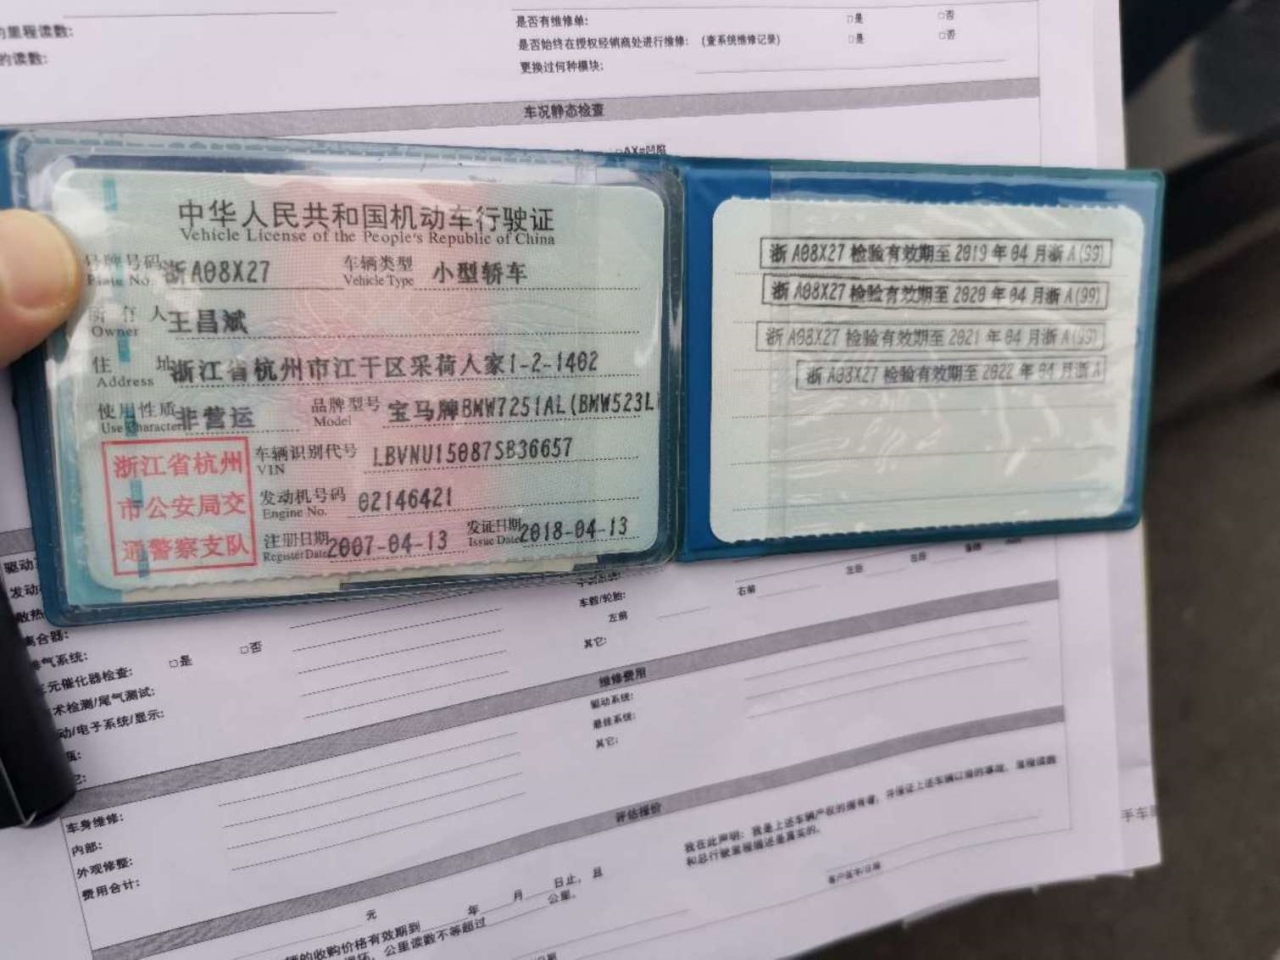 的里程读数:
的读数:
是否有维修单: □是 □否
是否始终在授权经销商处进行维修: (查系统维修记录) □是 □否
更换过何种模块:
车况静态检查
中华人民共和国机动车行驶证
Vehicle License of the People's Republic of China
号牌号码 浙A08X27 车辆类型 小型轿车
Plate No. Vehicle Type
所有人 王昌斌
Owner
住址 浙江省杭州市江干区采荷人家1-2-1402
Address
使用性质 非营运 品牌型号 宝马牌BMW7251AL(BMW523L
Use Character Model
浙江省杭州
市公安局交
通警察支队
车辆识别代号 LBVNU15087SB36657
VIN
发动机号码 02146421
Engine No.
注册日期 2007-04-13 发证日期 2018-04-13
Register Date Issue Date
浙A08X27检验有效期至2019年04月浙A(99)
浙A08X27检验有效期至2020年04月浙A(99)
浙A08X27检验有效期至2021年04月浙A(99)
浙A08X27检验有效期至2022年04月浙A
驱动
发动
散热
离合器:
排气系统: □是 □否
三元催化器检查:
术检测/尾气测试:
动/电子系统/显示:
车毂/轮胎:
左前
右前
其它:
维修费用
驱动系统:
悬挂系统:
其它:
车身维修:
内部:
外观修整:
费用合计:
评估报价
元 年 月 日止, 且
辆的收购价格有效期到
公里读数不等超过 公里。
我在此声明: 我是上述车辆产权的拥有者, 并保证上述车辆以前的事故、里程读数
和总行驶里程描述是真实的。
客户签字/日期
手车